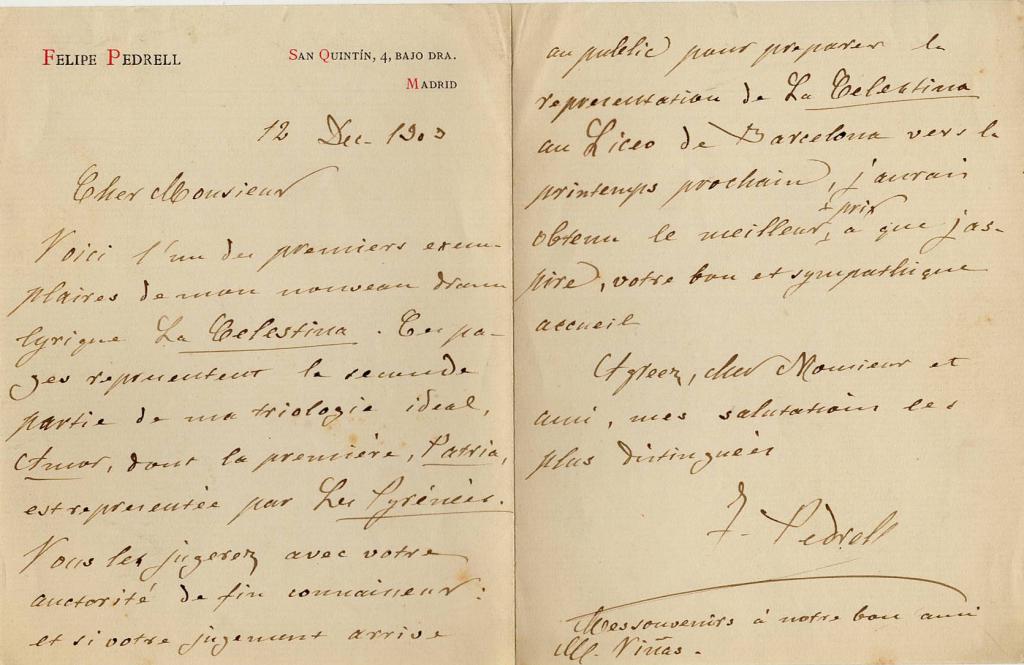 FELIPE PEDRELL
SAN QUINTÍN, 4, BAJO DRA.
MADRID
12 Dec. 1903
Cher Monsieur
Voici l'un des premiers exem-
plaires de mon nouveau drame
lyrique La Celestina. Ces pa-
ges representent la seconde
partie de ma triologie ideal,
Amor, dont la première, Patria,
est representée par Les Pyrénées.
Vous les jugerez avec votre
auctorité de fin connaisseur:
et si votre jugement arrive
au public pour preparer la
representation de La Celestina
au Liceo de Barcelona vers le
printemps prochain, j'aurais
obtenu le meilleur prix a que j'as-
pire, votre bon et sympathique
accueil
Agreez, cher Monsieur et
ami, mes salutations les
plus distinguées
F. Pedrell
Mes souvenirs à notre bon ami
M. Viñas.